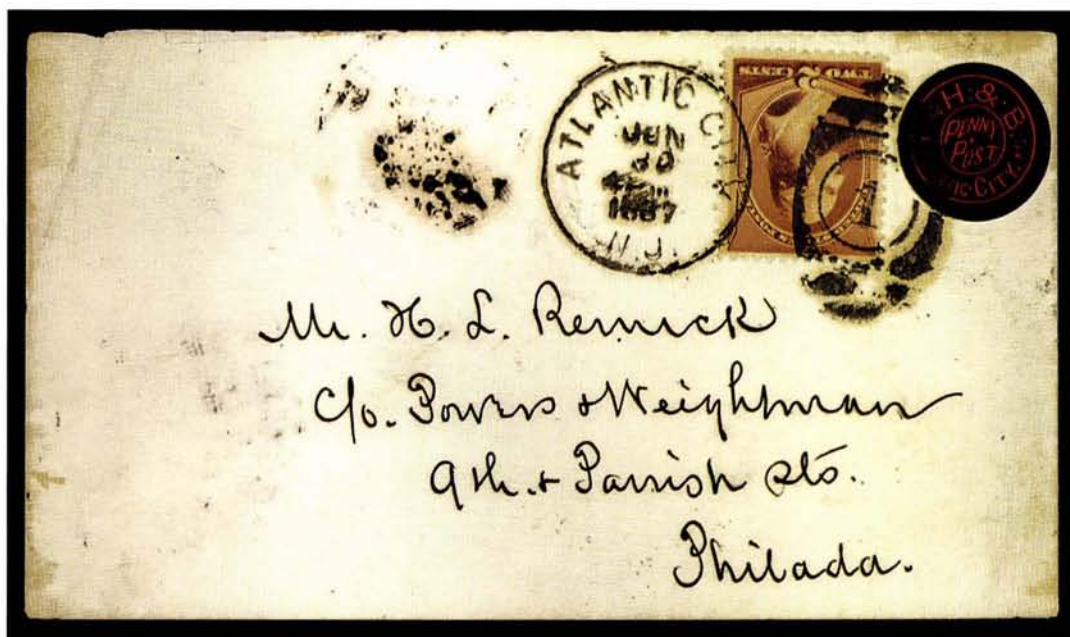 ATLANTIC CITY
JUN
30
1887
N.J.
H. & B.
PENNY
POST
CITY
Mr. H. L. Remick
c/o. Powers & Weightman
9th. & Parrish sts.
Philada.